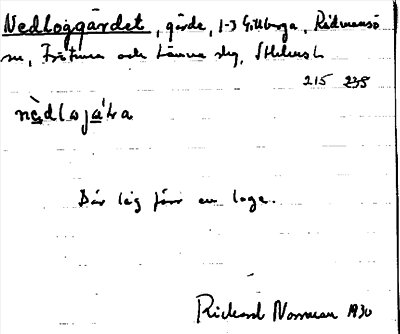 Nedloggärdet, gärde, 1-3 Gillberga, Rådmansö
sn, Frötuna och Länna skg, Sthlms l.
215 235
nèdlǝjá̱ḷa
Där låg förr en loge.
Rickard Norman 1930